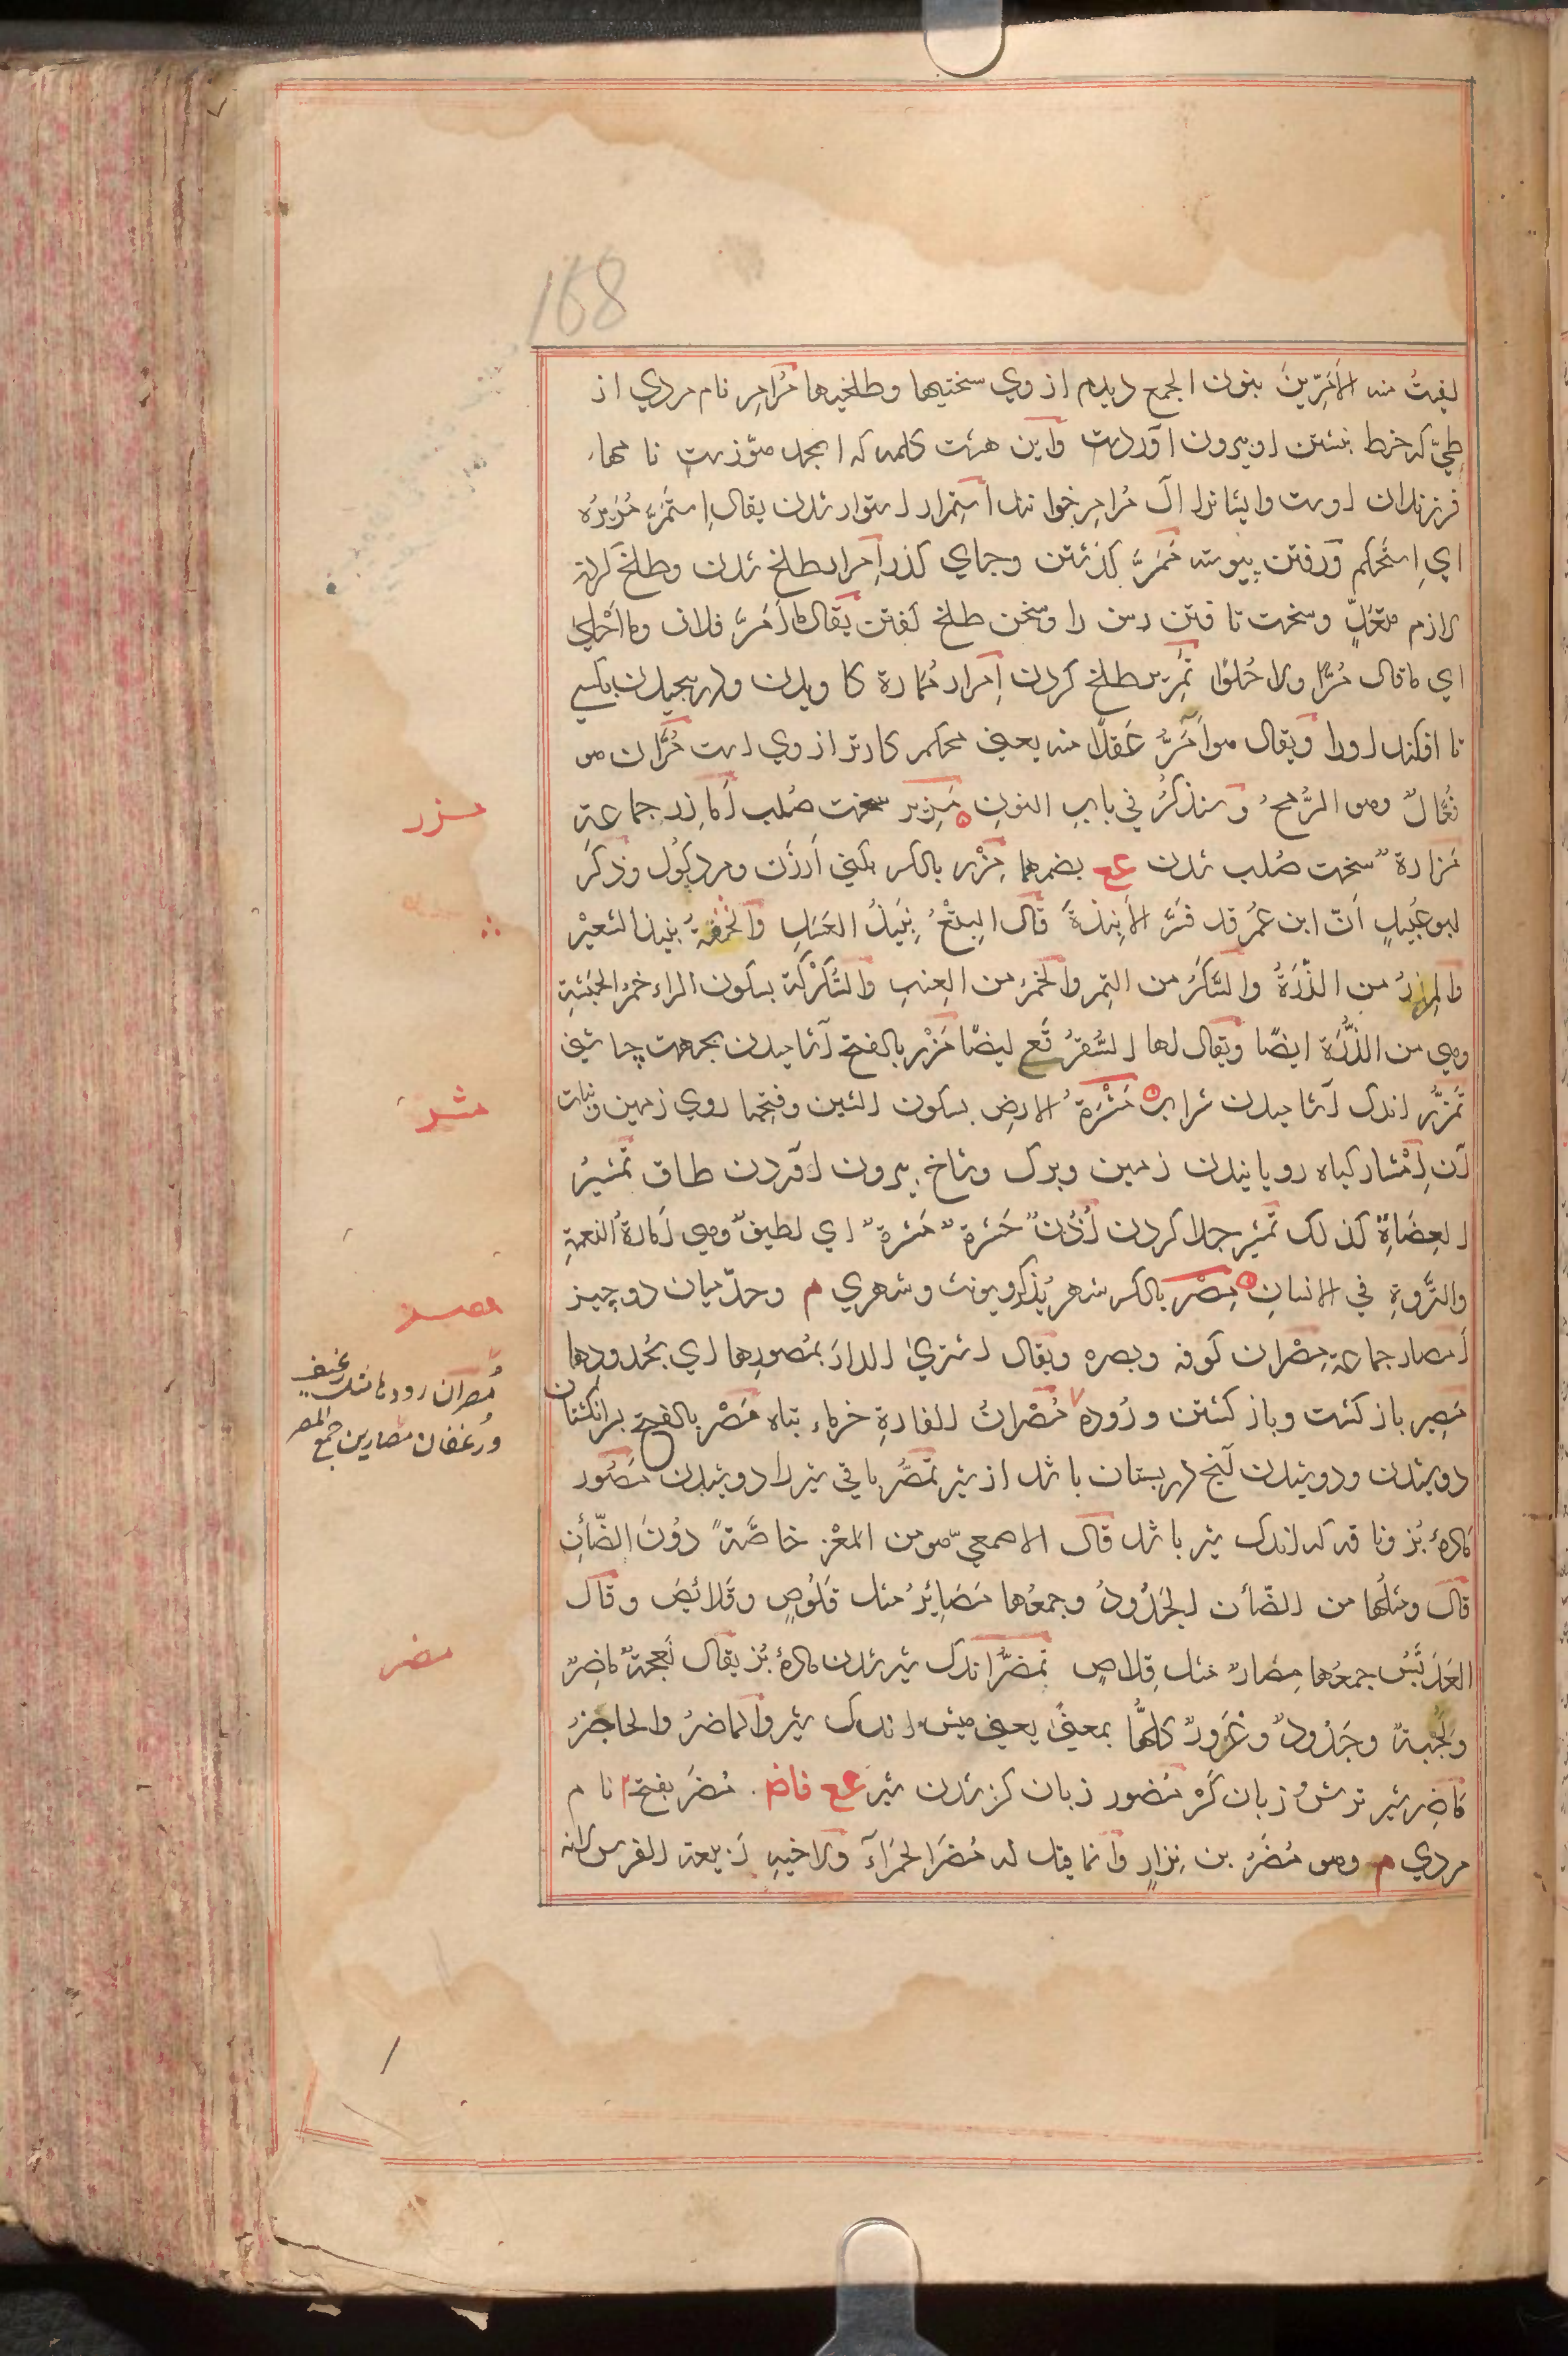 168
لقیتُ منه الأَمَرِّینَ بنون الجمع دیدم از وي سختیها وطلخیها مُرامِر نام مردي از
طيّ که خط نبشتن او بیرون آوردست وأین هشت کلمه که ابجد هوّزست نامهاء
فرزندان اوست وایشانرا آل مُرامِر خوانند استِمرار استوار شدن یقال اِستَمَرَّ مَرِیرُه
اي اِستَحکم ورفتن پیوسته مَمَرّ کذشتن وجماي کذر اِمرار طلخ شدن وطلخ کردن
لازم متعدٍّ وسخت تافتن رسن را وسخن طلخ کفتن یقال ما أَمَرَّ فلان وما أَحْلیٰ
اي ما قال مُرًّا ولا حُلوًا تمریر طلخ کردن اِمرار مُمارة کاویدن ودر پیچیدن بکسي
تا افکند اورا ویقال هو أَمَرُّ عَقلًا منه یعني محکم کارتر از وي است مُرَّان هو
فُعَّالٌ وهو الرُّمحُ وسنذکرُ في باب النون مَزِیر سخت صُلب أَمازِر جماعة
مَزارة سخت صُلب شدن عع بضمهما مِزْر بالکسر بکني أرزن ومرد کول وذکَر
ابو عُبَیدٍ أنّ ابن عُمر قد فسَّر الأَنبِذةَ قال البِتْعُ نَبِیذُ العَسَلِ والجِعَةُ نبیذ الشعیْر
والمِزرُ من الذُّرَةُ والسَّکَرُ من التمر والخمرُ من العِنبِ والسُّکُرْکَة بسکون الراء خمرُ الحَبَشةِ
وهي من الذُّرَة ایضًا ویقال لها السُّقُرقَع ایضًا مَزْر بالفتح آشامیدن بجهت چاشني
تمزُّر اندک آشامیدن شراب مَشْرَةُ الارضِ بسکون الشین وفتحها روي زمین ونبات
آن اِمْشار کیاه رویانیدن زمین وبرک وشاخ بیرون آوردن طاق تمشیرُ
العِضَاةِ کذلک تمشیر جدا کردن أُذُنٌ حَشرةٌ مَشرةٌ اي لطیفةٌ وهي أَمارةُ النعمةِ
والثَّروةِ في الانسانِ مِصْر بالکسر شهر یُذکّر ویونث وشهري م وحدّ میان دو چیز
أمصار جماعة مِصْران کوفه وبصره ویقال اشتریٰ الدارَ بمُصورِها اي بحُدودِها
مَصِیر بازکشت وبازکشتن ورُوده مُصْرانُ الفارةِ خرماء تباه مَصْر بالفتح برانکشتان
دوشیدن ودوشیدن آنچ در پستان باشد از شیر تمصُّر باقي شیر را دوشیدن مَصُور
مادهٔ بُز وناقه که اندک شیر باشد قال الاصمعيّ هو من المعْزِ خاصَّةً دُونَ الضّأنِ
قال ومثلُها من الضّأن الجَدُودُ وجمعُها مَصَائِرُ مثل قَلُوصٍ وقَلائِصَ وقال
العَدَبَّسُ جمعُها مِصارٌ مثل قِلاصٍ تمصُّر اندک شیر شدن مادهٔ بُز یقال نَعجةٌ ماصِرٌ
ولَجْبةٌ وجَدُودٌ وغَرُورٌ کلّها بمعنیً یعني میش اندک شیر والماصرُ والحاجزُ
ماضِر شیر ترش زبان کز مُضور زبان کز شدن شیر عع فاض. مُضَر بفتح نام
مردي م وهو مُضَرُ بن نِزارٍ وانما قیل له مُضَر الحَمرآءَ ولأخیهِ رَبیعة الفرس لأنه
مزر
مشر
مصر
مُصران رودها مثل رغیف
ورُغفان مصارین جمع الجمع
مضر